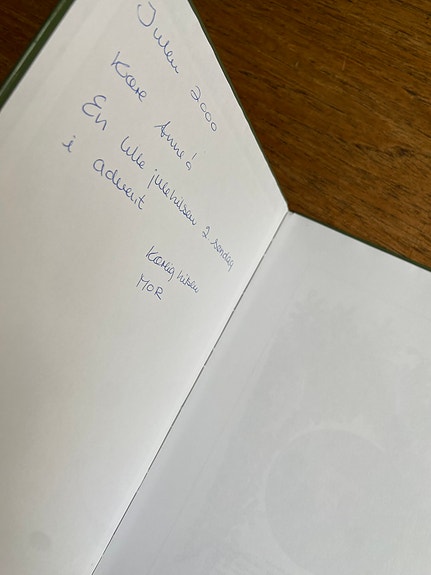 Julen 2000
Kære Anne!
En lille julehilsen 2 søndag
i advent
Kærlig hilsen
MOR